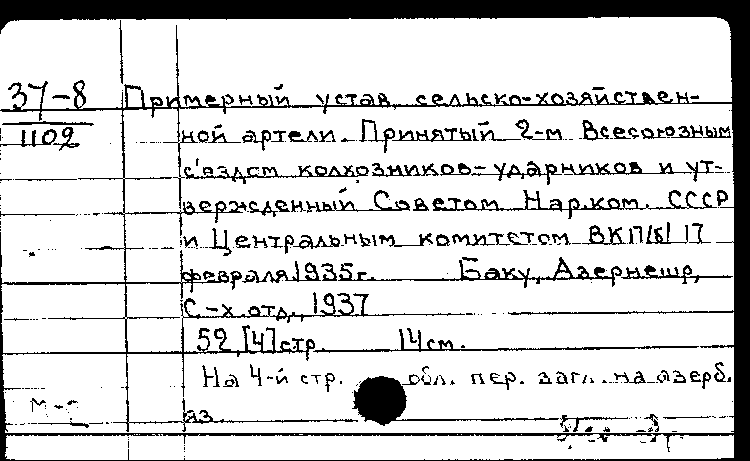 37-8
1102
Примерный устав сельско-хозяйствен-
ной артели. Принятый 2-м Всесоюзным
с'ездом колхозников-ударников и ут-
вержденный Советом Нар.ком. СССР
и Центральным комитетом ВКП/б/ 17
февраля 1935г. Баку, Азернешр,
С.-х отд., 1937
52,[4]стр. 14см.
На 4-й стр. обл. пер. загл. на азерб.
яз.